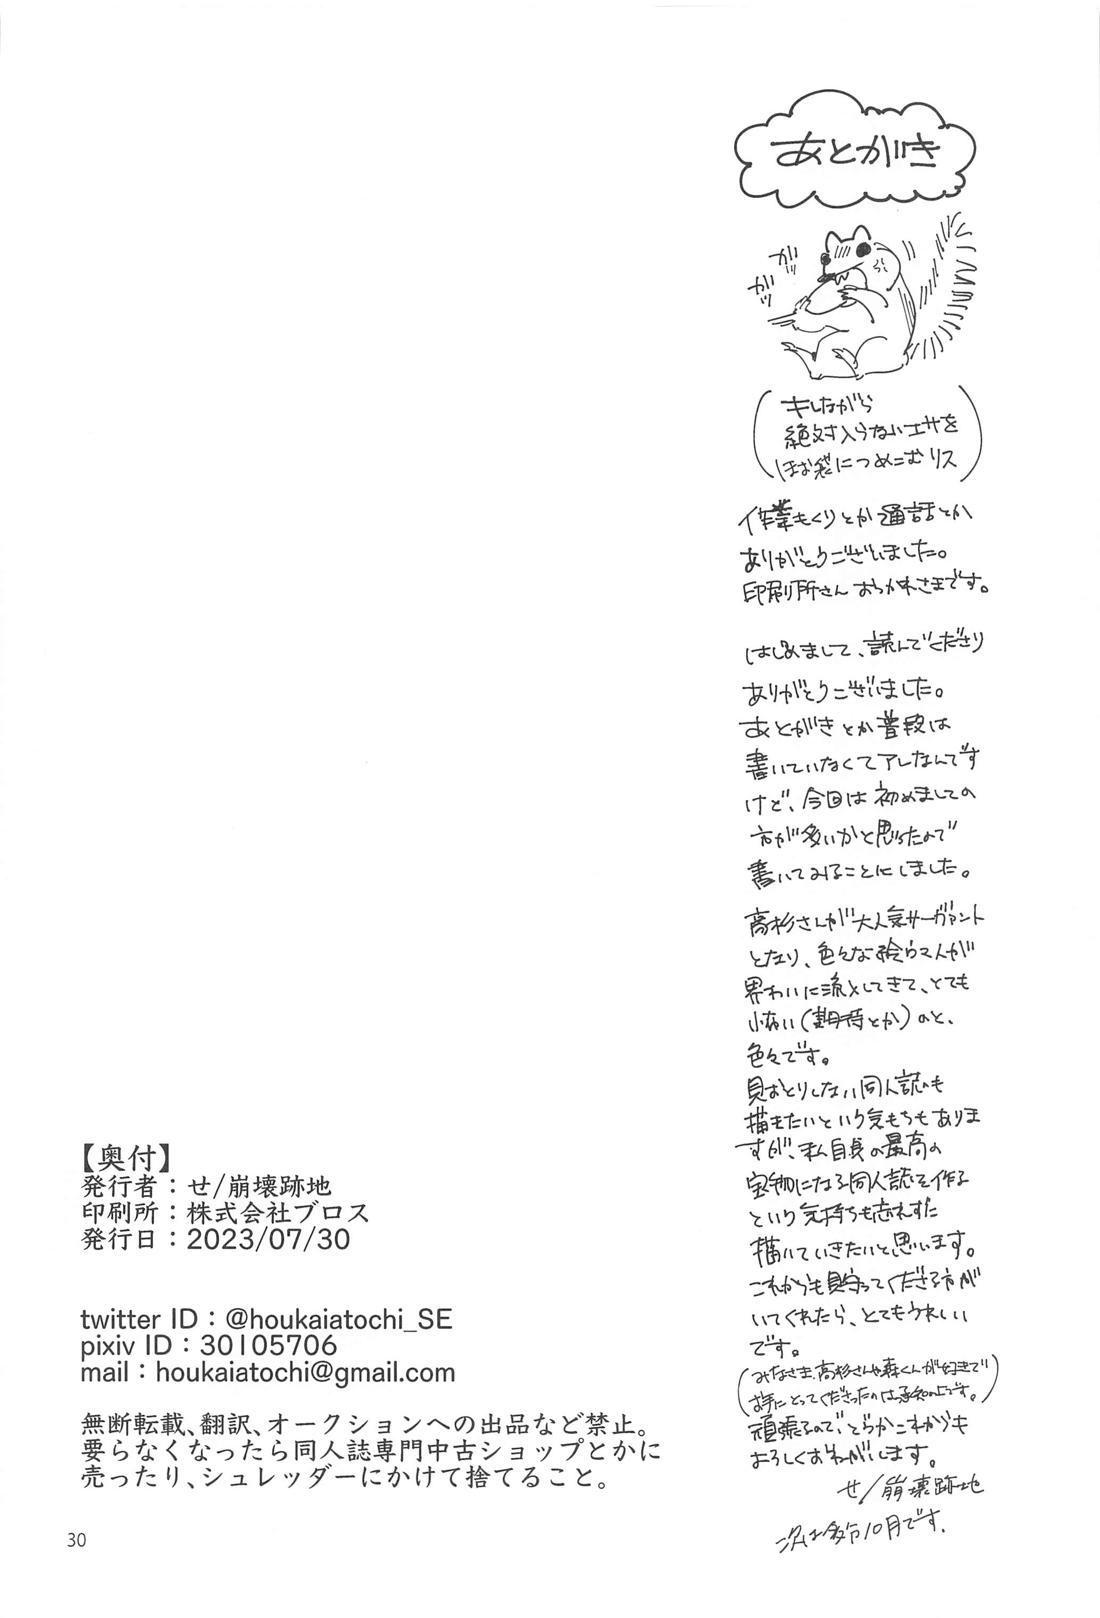 あとがき
ガッ
ガッ
キレながら
絶対入らないエサを
ほお袋につめこむリス
作業もくりとか通話とか
ありがとうございました。
印刷所さんおつかれさまです。
はじめまして、読んでくださり
ありがとうございました。
あとがきとか普段は
書いていなくてアレなんです
けど、今回は初めましての
方が多いかと思ったので
書いてみることにしました。
高杉さんが大人気サーヴァント
となり、色々な絵ウマ人が
界わいに流入してきて、とても
小布い(期待とか)のと、
色々です。
見おとりしない同人誌も
描きたいという気もちもありま
すが、私自身の最高の
宝物になる同人誌を作る
という気持ちも忘れずに
描いていきたいと思います。
これからも見守ってくださる方が
いてくれたら、とてもうれしい
です。
(みなさま、高杉さんや森くんが好きで
お手にとってくださったのは承知の上です。)
頑張るので、どうかこれからも
よろしくおねがいします。
せ/崩壊跡地
次は多分10月です。
【奥付】
発行者：せ/崩壊跡地
印刷所：株式会社ブロス
発行日：2023/07/30
twitter ID：@houkaiatochi_SE
pixiv ID：30105706
mail：houkaiatochi@gmail.com
無断転載、翻訳、オークションへの出品など禁止。
要らなくなったら同人誌専門中古ショップとかに
売ったり、シュレッダーにかけて捨てること。
30